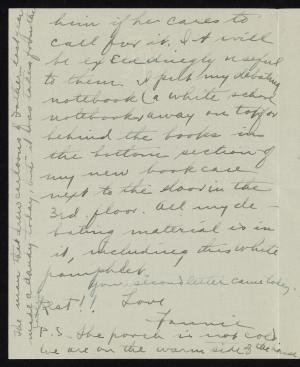 him if he cares to
call for it. It will
be exceedingly useful
to them. I put my debating
notebook (a white school
notebook) away on top or
behind the books in
the bottom section of
my new bookcase
next to the door in the
3rd. floor. All my de-
bating material is in
it, including this white
pamphlet.
Your second letter came today.
Rest!! Love
Fannie
P.S. The porch is not cold
we are on the warm side of the house
The man that drew cartoons of
made a dandy today, but it was taken from the